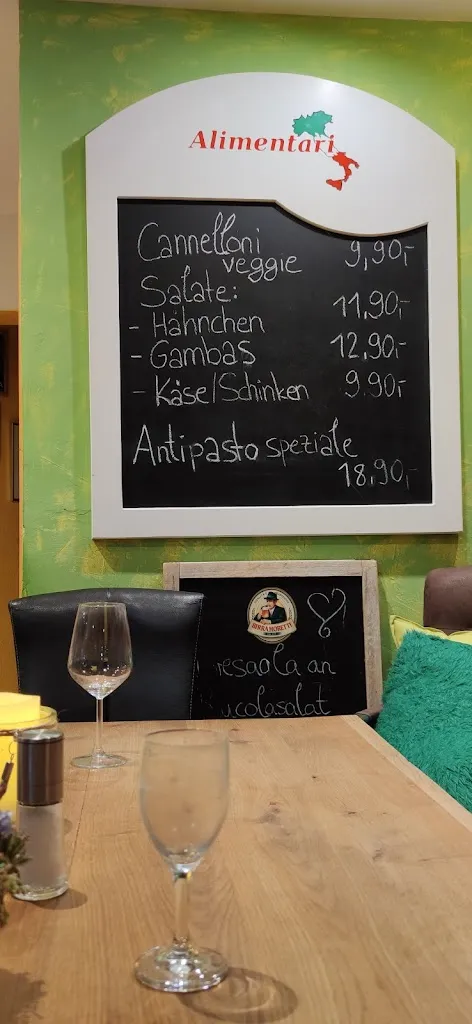 Alimentari
Cannelloni
veggie 9,90,-
Salate:
- Hähnchen 11,90,-
- Gambas 12,90,-
- Käse/Schinken 9.90,-
Antipasto speziale
18,90,-
BIRRA MORETTI
resaola an
ucolasalat